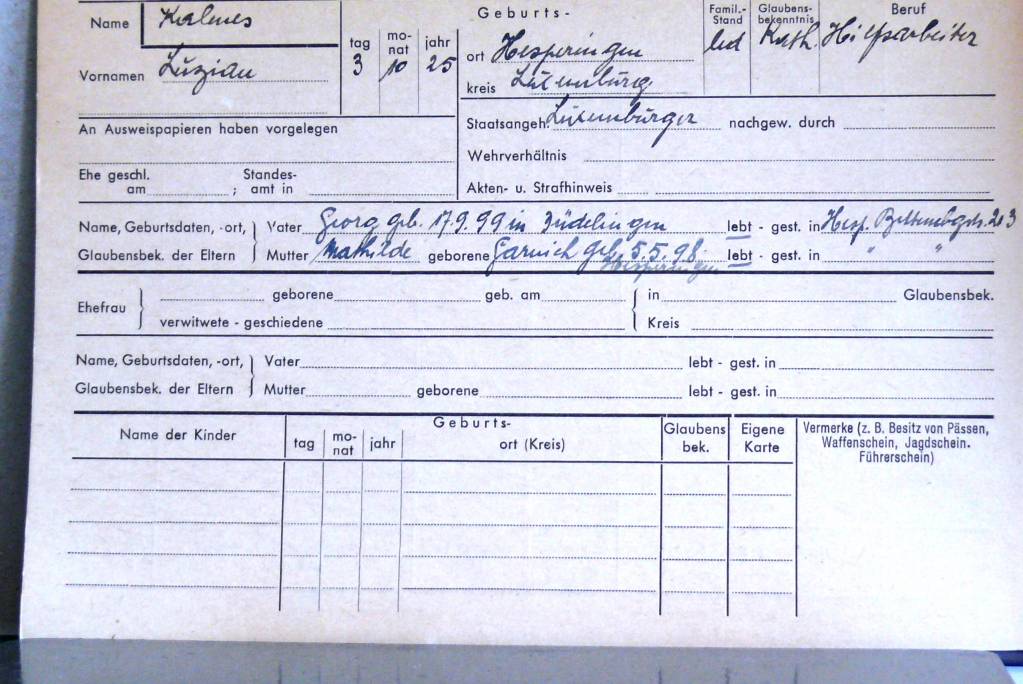 Name Kalmes
Vornamen Luzian
Geburts-
tag mo-nat jahr
3 10 25
ort Hesperingen
kreis Luxemburg
Famil.-Stand led
Glaubens-bekenntnis Kath.
Beruf Hilfsarbeiter
An Ausweispapieren haben vorgelegen
Staatsangeh. Luxemburger nachgew. durch
Wehrverhältnis
Ehe geschl. am ; Standes-amt in
Akten- u. Strafhinweis
Name, Geburtsdaten, -ort, Vater Georg geb. 17.9.99 in Düdelingen lebt - gest. in Hesp.
Glaubensbek. der Eltern Mutter Mathilde geborene Garnich geb. 5.5.98 lebt - gest. in " "
Hesperingen
Ehefrau geborene geb. am in Glaubensbek.
verwitwete - geschiedene Kreis
Name, Geburtsdaten, -ort, Vater lebt - gest. in
Glaubensbek. der Eltern Mutter geborene lebt - gest. in
Name der Kinder
Geburts-
tag mo-nat jahr ort (Kreis)
Glaubens bek.
Eigene Karte
Vermerke (z. B. Besitz von Pässen,
Waffenschein, Jagdschein.
Führerschein)